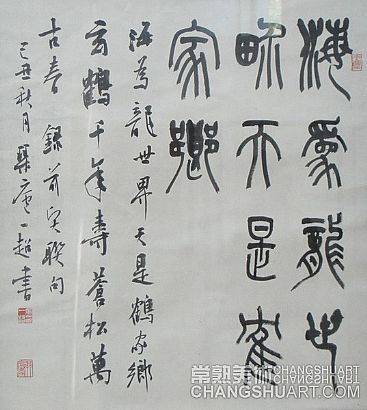 海為龍世
界天是鶴
家鄉
海為龍世界天是鶴家鄉
玄鶴千年壽蒼松萬
古春 錄前聯句
己丑秋月一超書
常熟美術 CHANGSHUART
CHANGSHUART.COM